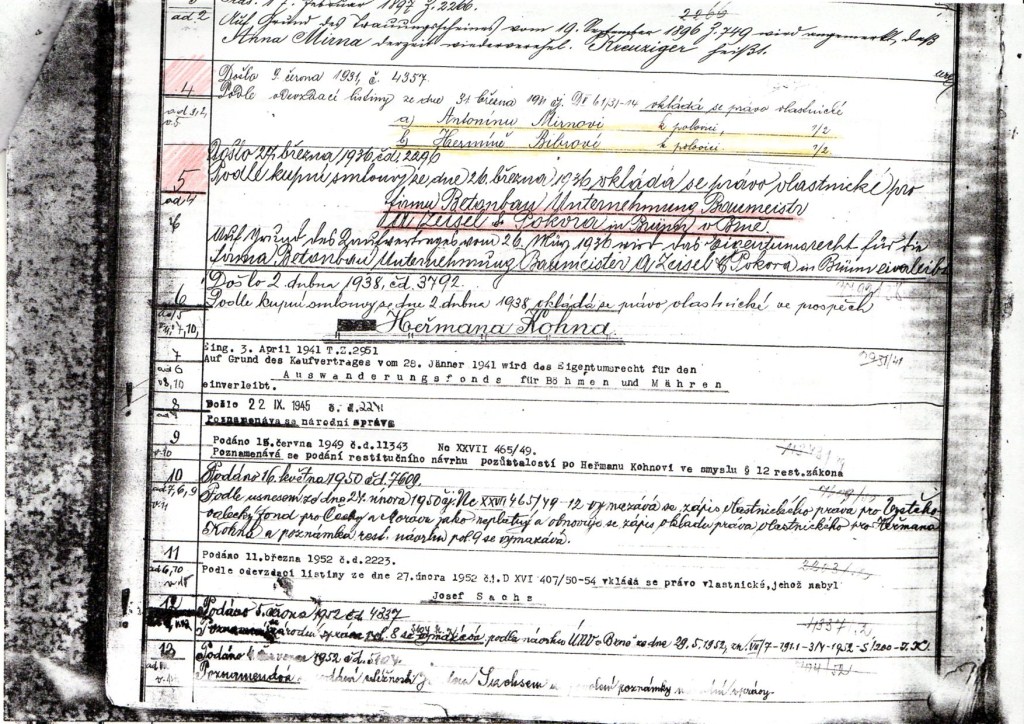 ad 2
Auf Grund des Trauungsscheines vom 19. September 1896 Z. 749 wird angemerkt, daß
Anna Mirna derzeit wiederverehel. Kreuziger heißt.
4
Došlo 9. června 1931, č. 4357.
Podle odevzdací listiny ze dne 31. března vkládá se právo vlastnické
a) Antonínu Mirnovi k polovici, 1/2
b) Hermíně Bibrové k polovici 1/2
Došlo 27. března 1936 čd. 2296
5
ad 4
Podle kupní smlouvy ze dne 26. března 1936 vkládá se právo vlastnické pro
firmu Betonbau Unternehmung Baumeistr
Zeisel & Pokora in Brünn v Brně.
Auf Grund des Kaufvertrages vom 26. März 1936 wird das Eigentumsrecht für die
Firma Betonbau Unternehmung Baumeister A Zeisel & Pokora in Brünn einverleibt.
6
Došlo 2 dubna 1938, čd. 3792.
Podle kupní smlouvy ze dne 2. dubna 1938 vkládá se právo vlastnické ve prospěch
Heřmana Kohna.
7
Eing. 3. April 1941 T.Z.2951
2951/41
ad 6
Auf Grund des Kaufvertrages vom 28. Jänner 1941 wird das Eigentumsrecht für den
v8,10
Auswanderungsfonds für Böhmen und Mähren
einverleibt.
8
Došlo 22 IX. 1945 č. d. 2241
Poznamenává se národní správa
9
Podáno 15.června 1949 č.d.11343 No XXVII 465/49.
v10
Poznamenává se podání restitučního návrhu pozůstalostí po Heřmanu Kohnovi ve smyslu § 12 rest.zákona
10
Podáno 16. května 1950 čd. 7609.
ad 7, 6, 9
v 11
Podle usnesení ze dne 24. února 1950 čj. Nc XXVI 465/49-12 vymazává se zápis vlastnického práva pro Vystěho-
valecký fond pro Čechy a Moravu jako neplatný a obnovuje se zápis vkladu práva vlastnického pro Heřmana
Kohna a poznámka rest. návrhu pol. 9 se vymazává.
11
Podáno 11.března 1952 č.d.2223.
ad 6,10
Podle odevzdací listiny ze dne 27.února 1952 č.j.D XVI 407/50-54 vkládá se právo vlastnické,jehož nabyl
Josef Sachs
12
Podáno 5. června 1952 čd. 4837
se vymazává, podle návrhu ÚNV v Brně ze dne 29.5.1952,
13
Podáno července 1952 čd.
Poznamenává poznámky